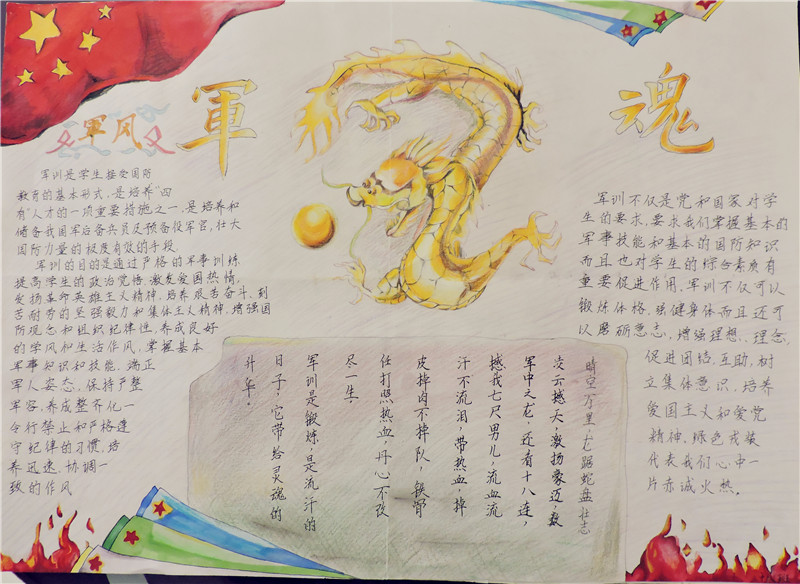 軍
魂
軍风
军训是学生接受国防
教育的基本形式，是培养“四
有”人才的一项重要措施之一，是培养和
储备我国军后备兵员及预备役军官，壮大
国防力量的极度有效的手段
军训的目的是通过严格的军事训练
提高学生的政治觉悟，激发爱国热情，
发扬革命英雄主义精神，培养艰苦奋斗，刻
苦耐劳的坚强毅力和集体主义精神，增强国
防观念和组织纪律性，养成良好
的学风和生活作风，掌握基本
军事知识和技能，端正
军人姿态，保持严整
军容，养成整齐化一
令行禁止和严格遵
守纪律的习惯，培
养迅速，协调一
致的作风
军训不仅是党和国家对学
生的要求，要求我们掌握基本的
军事技能和基本的国防知识
而且也对学生的综合素质有
重要促进作用，军训不仅可以
锻炼体格，强健身体而且还可
以磨砺意志，增强理想，理念，
促进团结，互助，树
立集体意识，培养
爱国主义和爱党
精神，绿色戎装
代表我们心中一
片赤诚火热。
晴空万里，龙踞蛇盘壮志
凌云撼天，激扬豪迈，数
军中之龙，还看十八连，
撼我七尺男儿，流血流
汗不流泪，带热血，掉
皮掉肉不掉队，铁骨
任打照热血，丹心不改
尽一生。
军训是锻炼，是流汗的
日子，它带给灵魂的
升华。